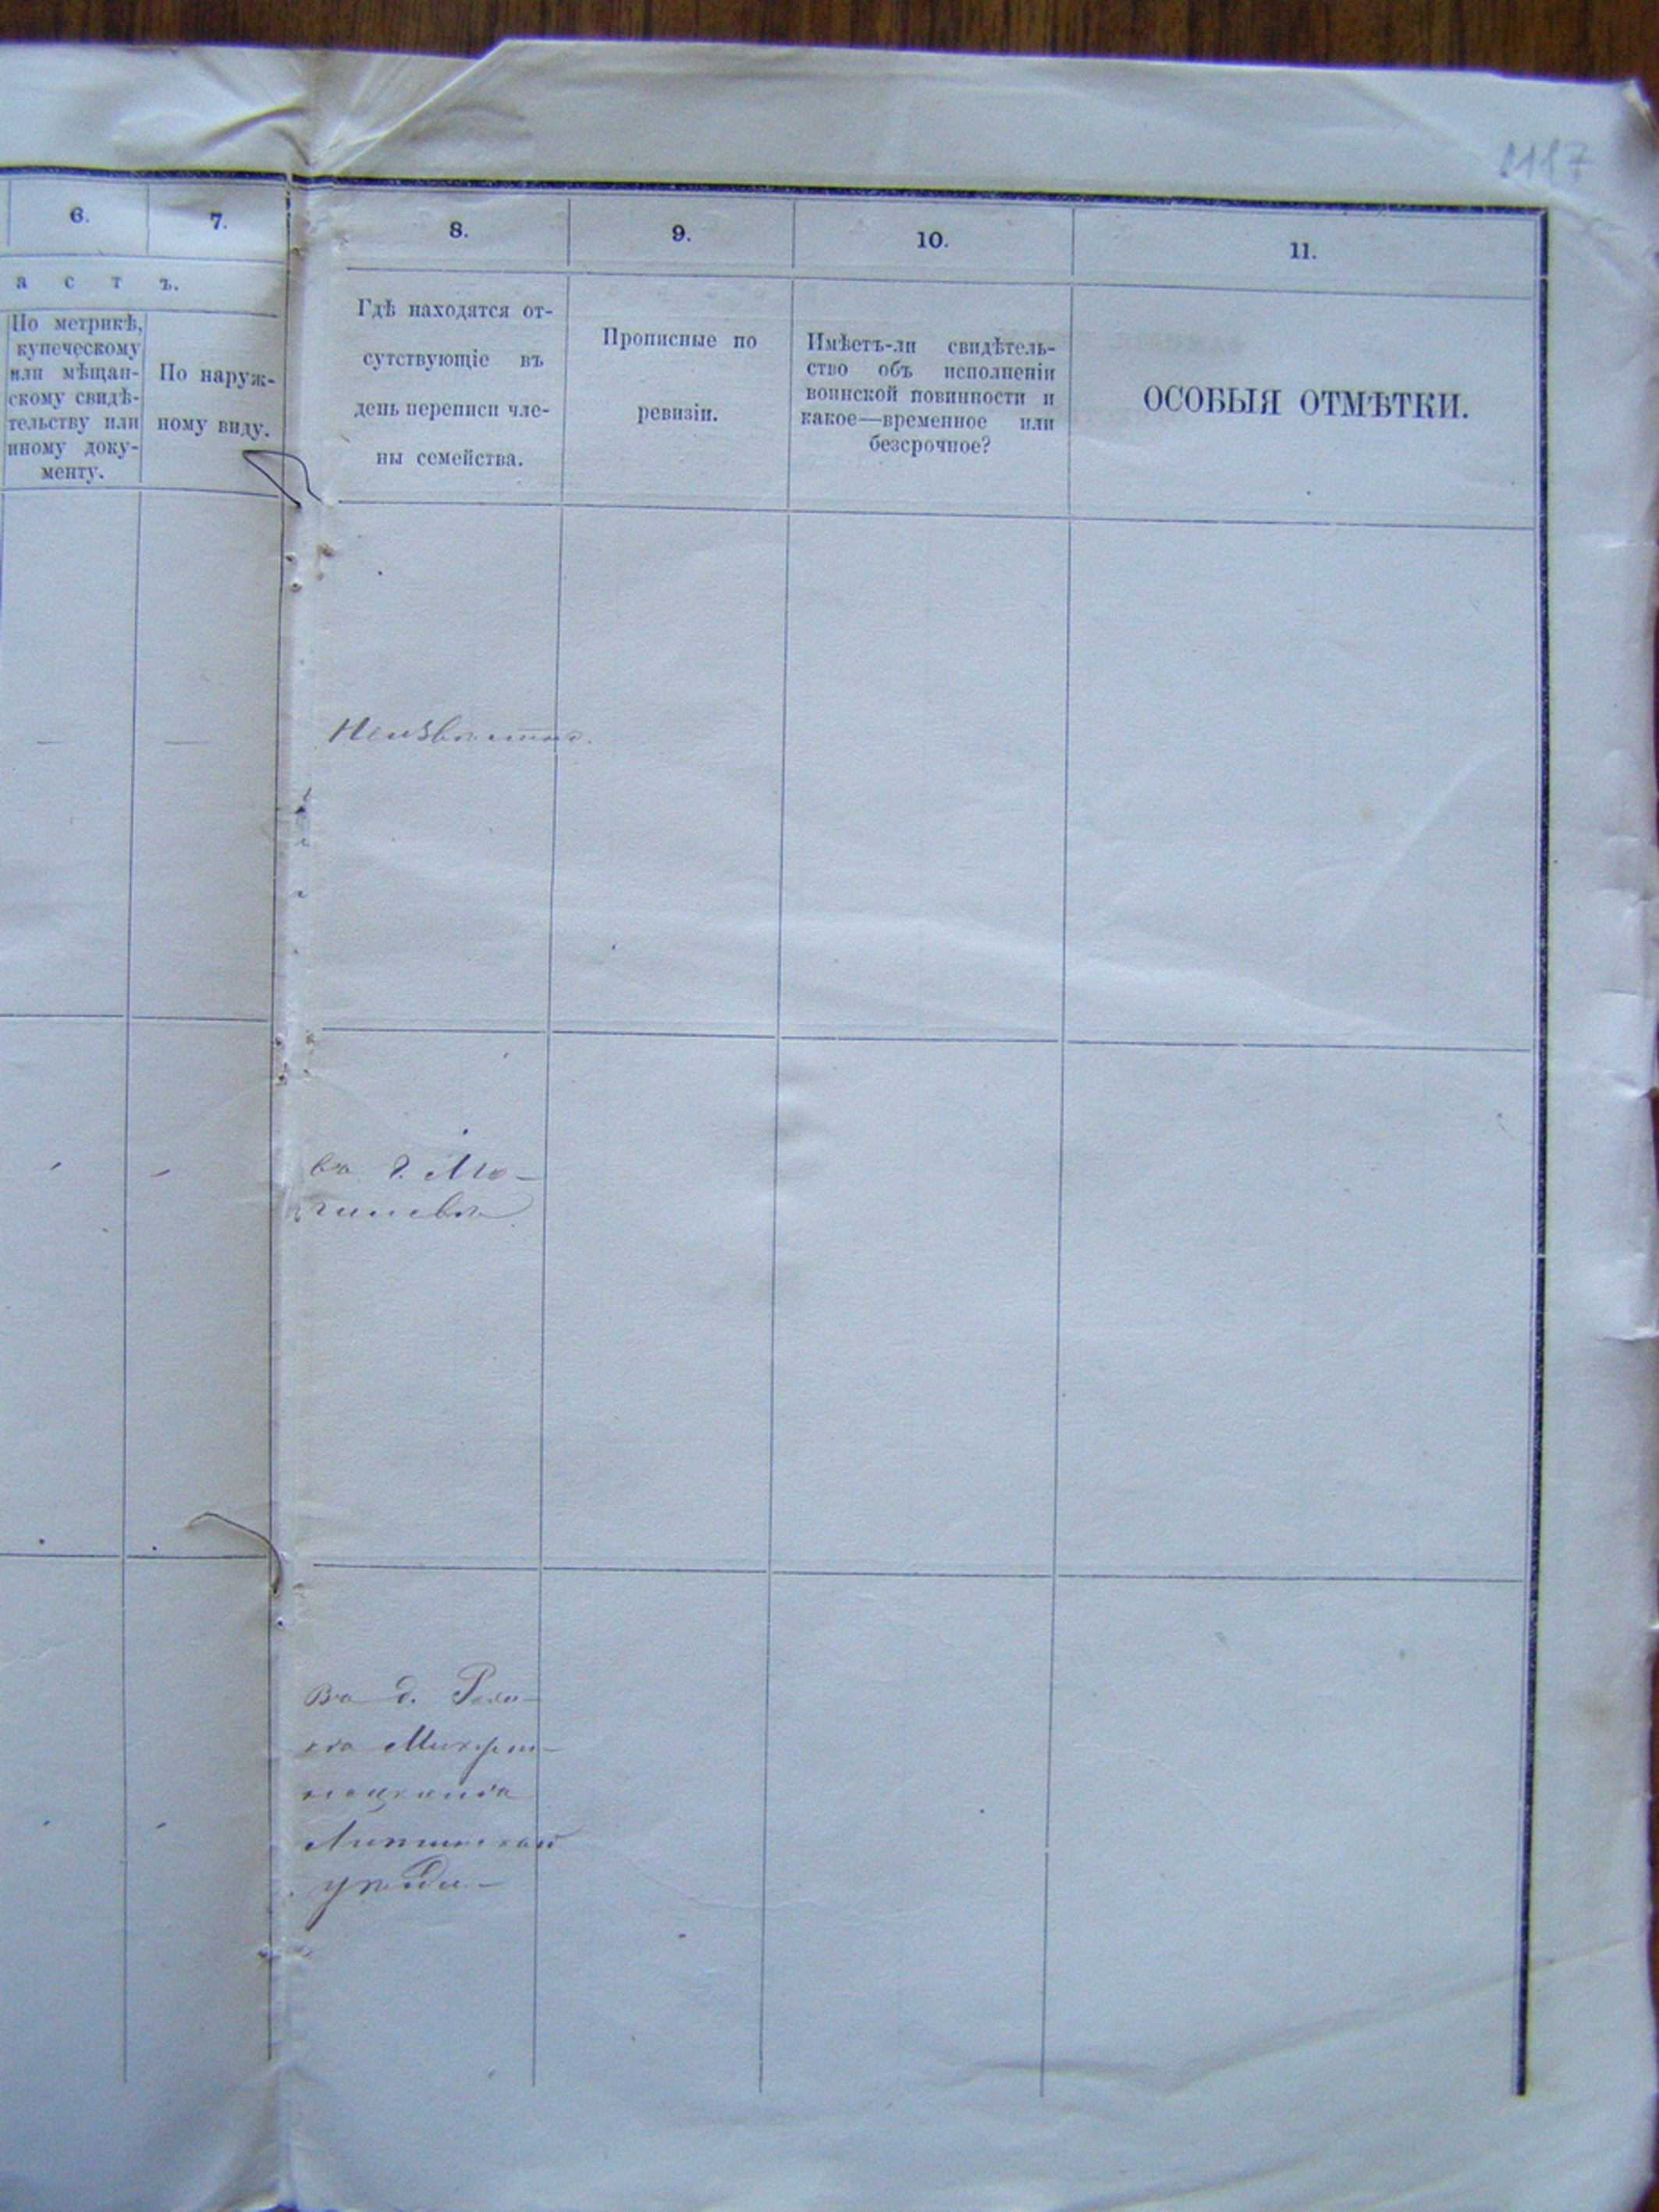 6. 7. 8. 9. 10. 11.
а с т ъ.
По метрикѣ,
купеческому
или мѣщан-
скому свидѣ-
тельству или
иному доку-
менту.
По наруж-
ному виду.
Гдѣ находятся от-
сутствующіе въ
день переписи чле-
ны семейства.
Прописные по
ревизіи.
Имѣетъ-ли свидѣтель-
ство объ исполненіи
воинской повинности и
какое—временное или
безсрочное?
ОСОБЫЯ ОТМѢТКИ.
Неизвѣстно.
въ г. Мо-
гилевѣ
Въ д.
уѣзда